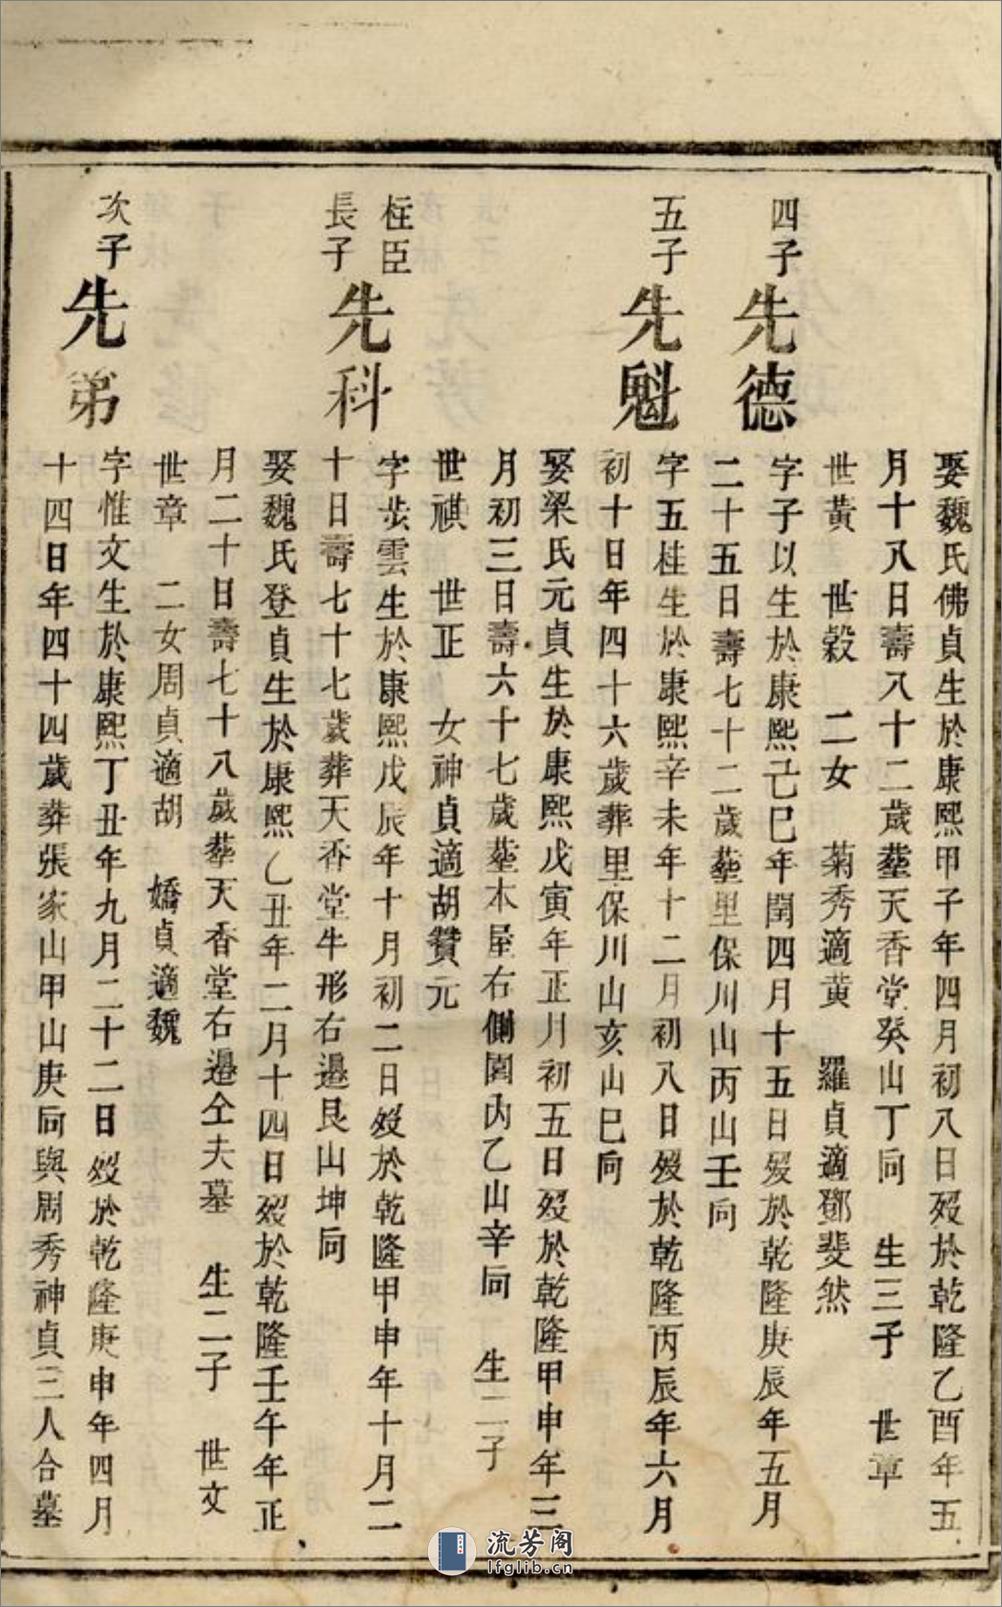 娶魏氏佛貞生於康熙甲子年四月初八日歿於乾隆乙酉年五
月十八日壽八十二歲塟天香堂癸山丁向 生三子 世章
世黃 世穀 二女 菊秀適黃 羅貞適鄧斐然
四子 先德
字子以生於康熙己巳年閏四月十五日歿於乾隆庚辰年五月
二十五日壽七十二歲塟里保川山丙山壬向
五子 先魁
字五桂生於康熙辛未年十二月初八日歿於乾隆丙辰年六月
初十日年四十六歲葬里保川山亥山巳向
娶梁氏元貞生於康熙戊寅年正月初五日歿於乾隆甲申年三
月初三日壽六十七歲塟木屋右側園內乙山辛向 生二子
世祺 世正 女神貞適胡贊元
柱臣
長子 先科
字步雲生於康熙戊辰年十月初二日歿於乾隆甲申年十月二
十日壽七十七歲葬天香堂牛形右邊艮山坤向
娶魏氏登貞生於康熙乙丑年二月十四日歿於乾隆壬午年正
月二十日壽七十八歲塟天香堂右邊仝夫墓 生二子 世文
世章 二女周貞適胡 嬌貞適魏
次子 先弟
字惟文生於康熙丁丑年九月二十二日歿於乾隆庚申年四月
十四日年四十四歲葬張家山甲山庚向與周秀神貞三人合墓
流芳阁
lfglib.cn